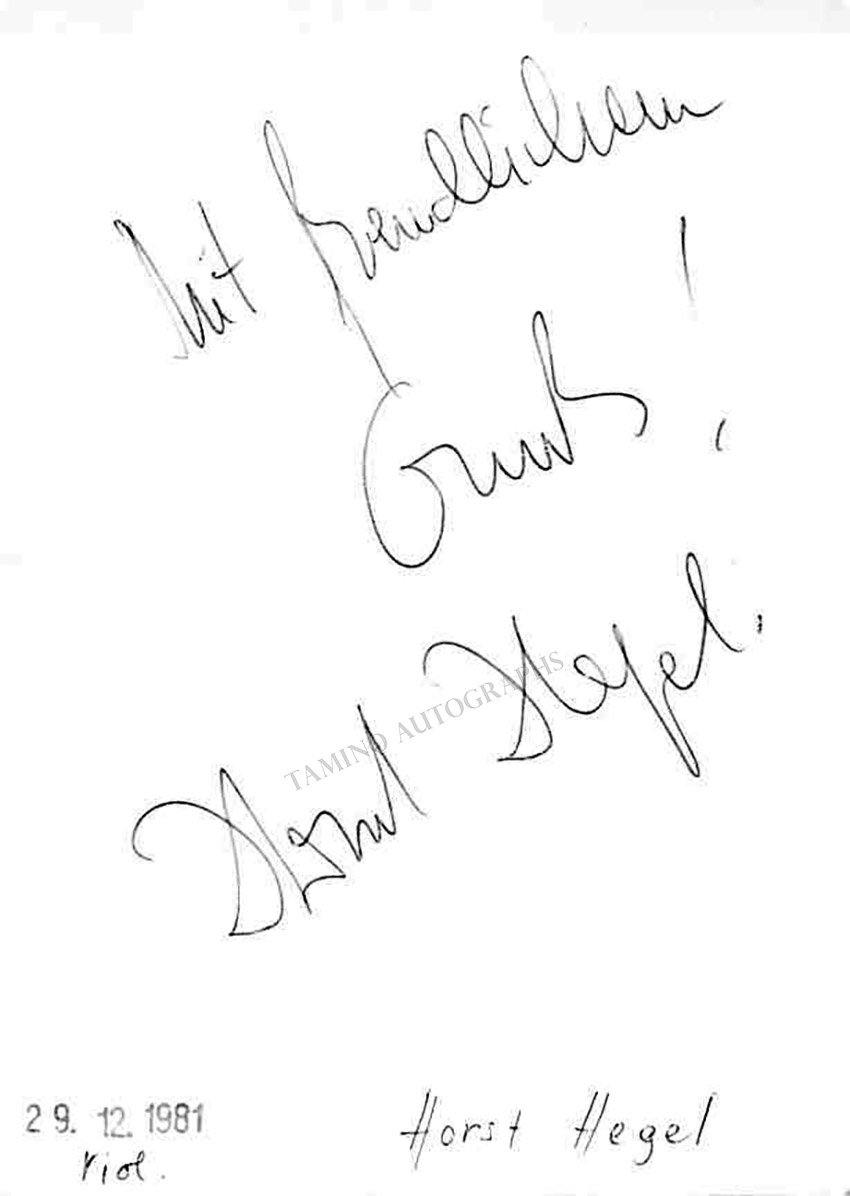 Mit freundlichem
Gruß!
Horst Hegel.
TAMINO AUTOGRAPHS
29. 12. 1981
Viol.
Horst Hegel